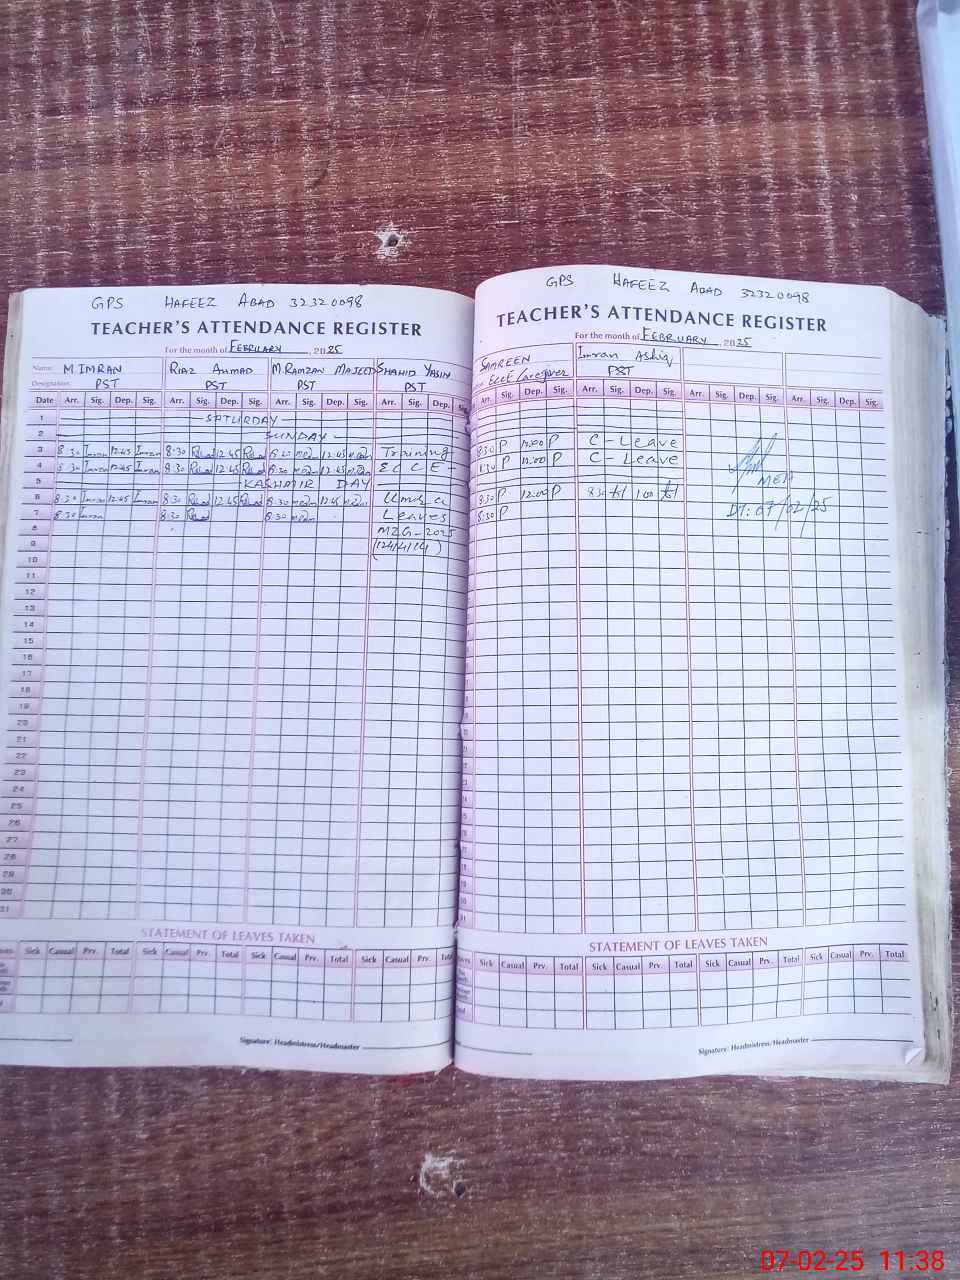 GPS HAFEEZ ABAD 32320098
TEACHER'S ATTENDANCE REGISTER
For the month of FEBRUARY, 2025
Name: M IMRAN RIAZ AHMAD M RAMZAN MAJEED SHAHID YASIN
Designation: PST PST PST PST
Date Arr. Sig. Dep. Sig. Arr. Sig. Dep. Sig. Arr. Sig. Dep. Sig. Arr. Sig. Dep. Sig.
1 SATURDAY
2 SUNDAY
3 8:30 Imran 12:45 Imran 8:30 12:45 8:30 12:45 Training
4 8:30 Imran 12:45 Imran 8:30 12:45 8:30 12:45 ECCE
5 KASHMIR DAY
6 8:30 Imran 12:45 Imran 8:30 12:45 8:30 12:45
7 8:30 Imran 8:30 8:30 Leaves
8 MZG-2025
9
10
11
12
13
14
15
16
17
18
19
20
21
22
23
24
25
26
27
28
29
30
31
STATEMENT OF LEAVES TAKEN
Sick Casual Prv. Total Sick Casual Prv. Total Sick Casual Prv. Total Sick Casual Prv. Total
Signature: Headmistress/Headmaster
GPS HAFEEZ ABAD 32320098
TEACHER'S ATTENDANCE REGISTER
For the month of FEBRUARY, 2025
SAMREEN Imran Ashiq
ECCE/Caregiver PST
Arr. Sig. Dep. Sig. Arr. Sig. Dep. Sig. Arr. Sig. Dep. Sig. Arr. Sig. Dep. Sig.
8:30 P 12:00 P C-Leave
8:30 P 12:00 P C-Leave
MEA
8:30 P 12:00 P 8:30 1:00
DT: 07/02/25
8:30 P
STATEMENT OF LEAVES TAKEN
Sick Casual Prv. Total Sick Casual Prv. Total Sick Casual Prv. Total Sick Casual Prv. Total
Signature: Headmistress/Headmaster
07-02-25 11:38